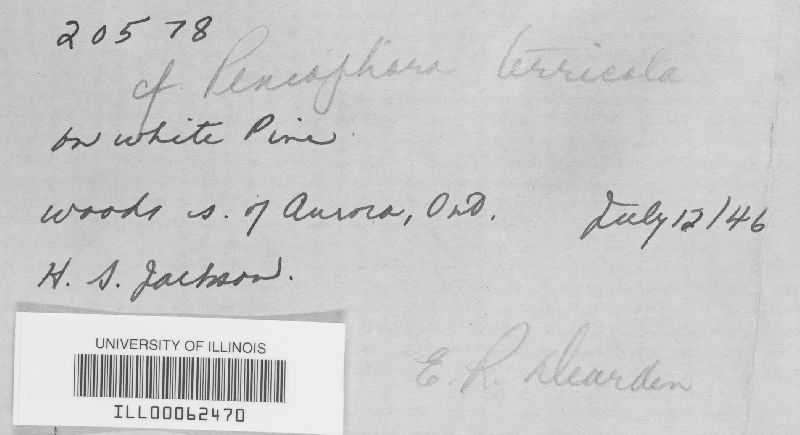 20578
cf. Peniophora terricola
on white Pine
woods s. of Aurora, Ont. July 12/46
H. S. Jackson.
UNIVERSITY OF ILLINOIS
ILL00062470
E. R. Dearden